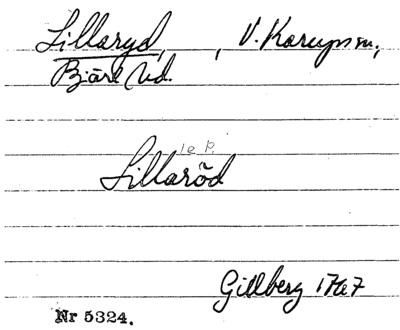 Lillaryd, , V. Karups sn,
Bjäre hd.
1 e P.
Lillaröd
Gillberg 1767
Nr 5324.